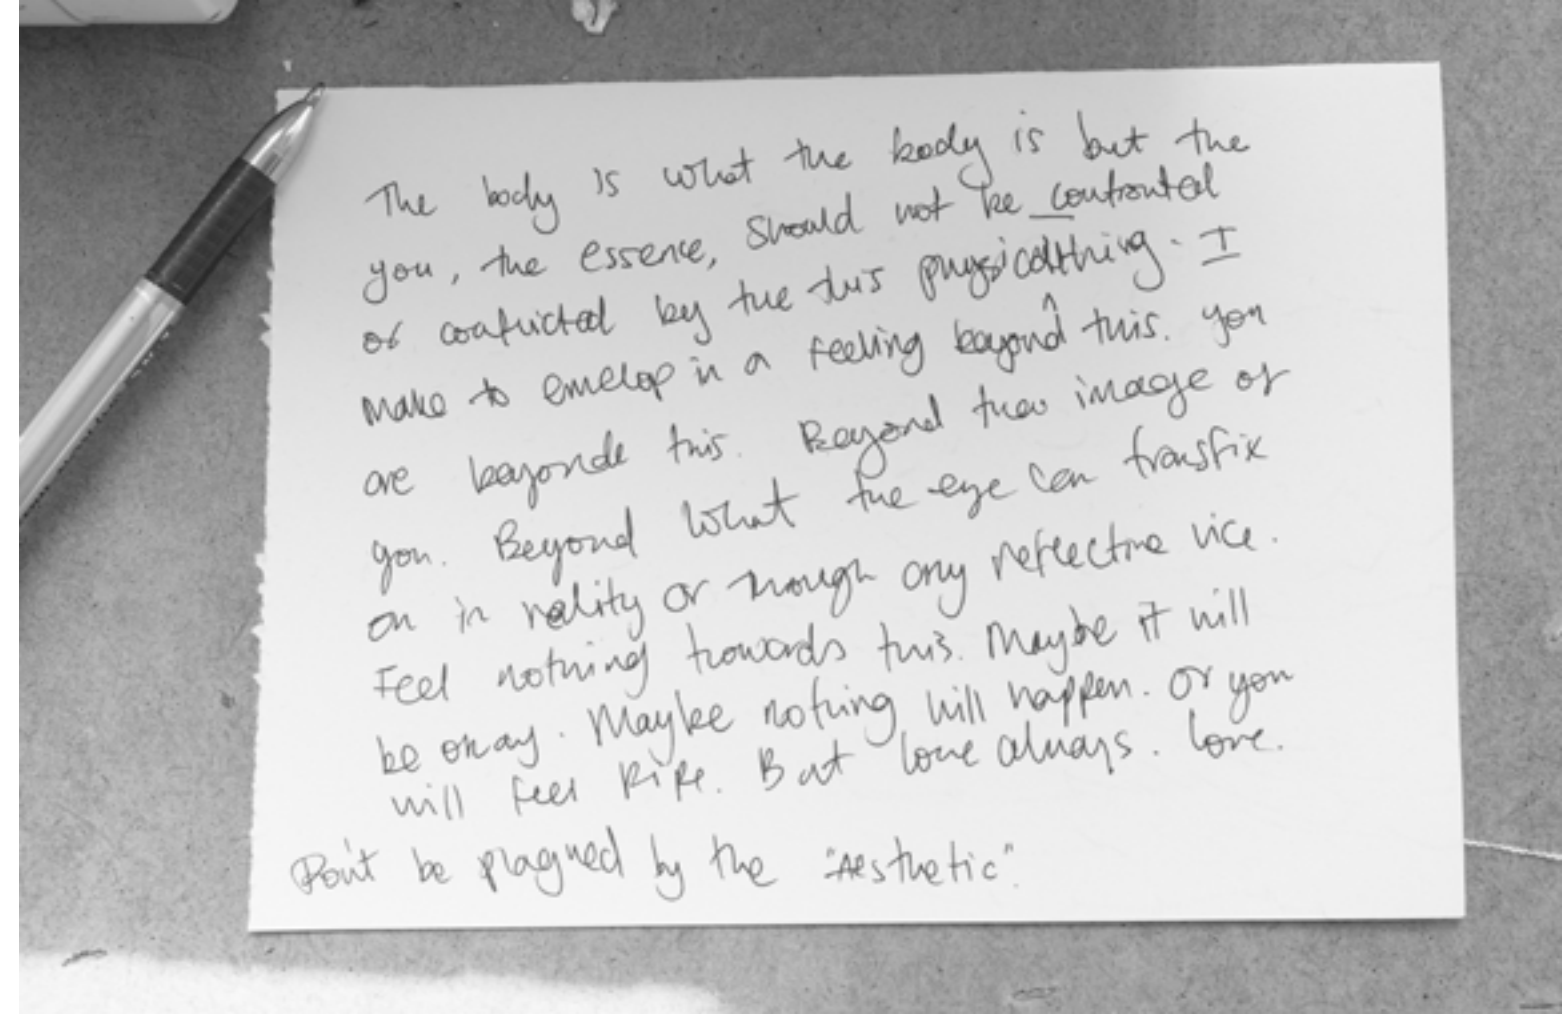 The body is what the body is but the
you, the essence, should not be confronted
or conflicted by the this physical thing. I
make to envelop in a feeling beyond this. You
are beyonde this. Beyond the image of
you. Beyond what the eye can transfix
on in reality or through any reflective vice.
Feel nothing towards this. Maybe it will
be okay. Maybe nothing will happen. Or you
will feel RIPE. But love always. Love.
Don't be plagued by the "Aesthetic".